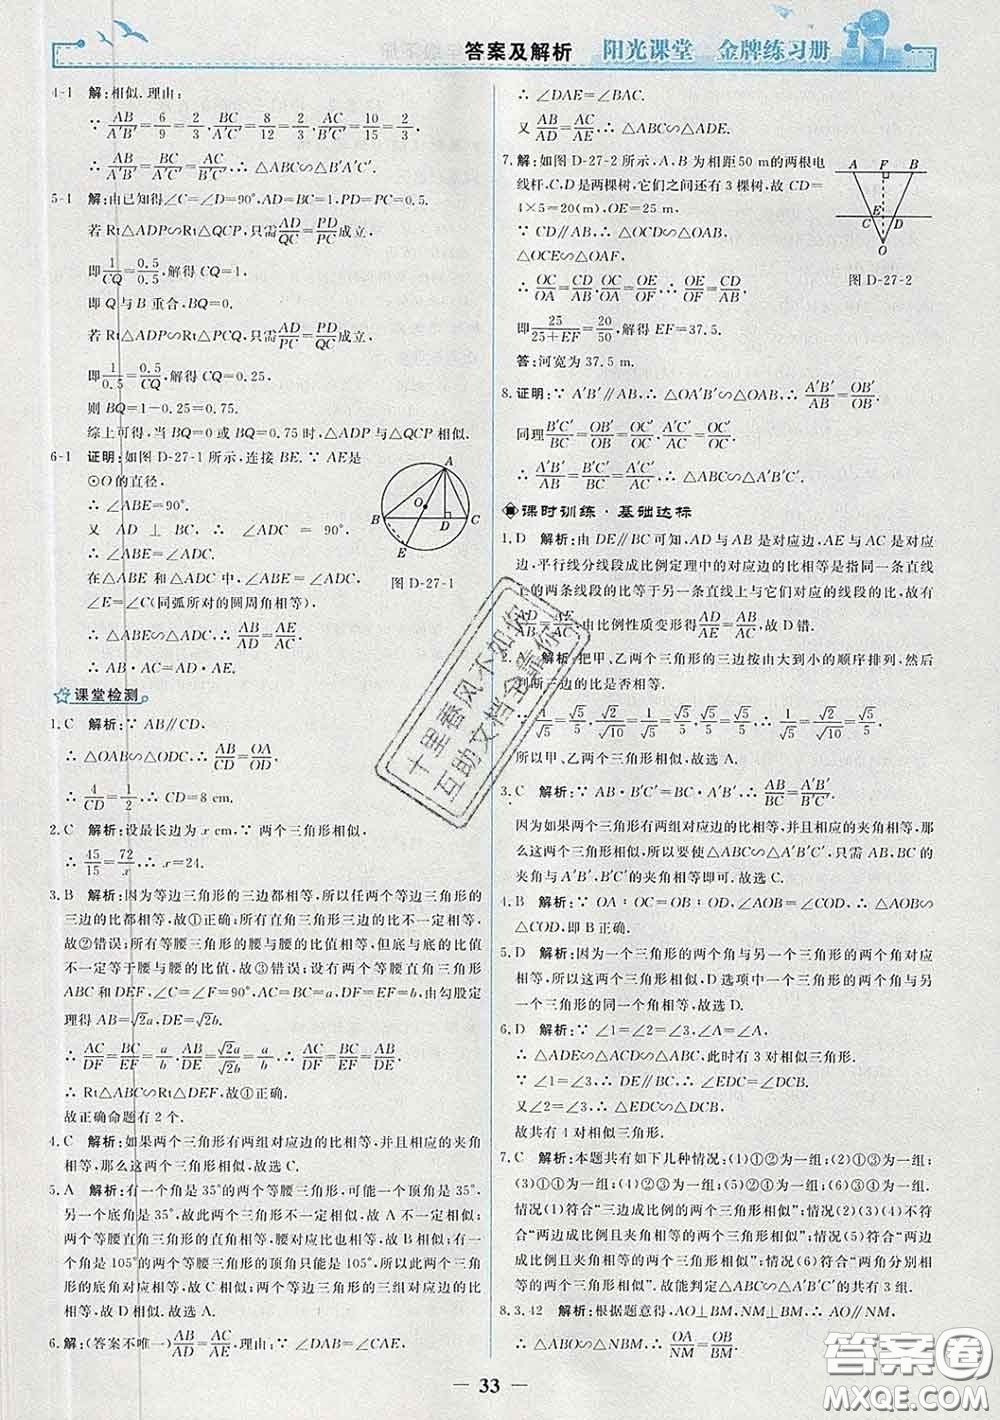 答案及解析 阳光课堂 金牌练习册
4-1 解:相似.理由:
∵ AB/A′B′=6/9=2/3,BC/B′C′=8/12=2/3,AC/A′C′=10/15=2/3,
∴ AB/A′B′=BC/B′C′=AC/A′C′,∴ △ABC∽△A′B′C′.
5-1 解:由已知得∠C=∠D=90°,AD=BC=1,PD=PC=0.5.
若 Rt△ADP∽Rt△QCP,只需AD/QC=PD/PC成立,
即1/CQ=0.5/0.5,解得 CQ=1,
即 Q 与 B 重合,BQ=0.
若 Rt△ADP∽Rt△PCQ,只需AD/PC=PD/QC成立,
即1/0.5=0.5/CQ,解得 CQ=0.25,
则 BQ=1-0.25=0.75.
综上可得,当 BQ=0 或 BQ=0.75 时,△ADP 与△QCP 相似.
6-1 证明:如图 D-27-1 所示,连接 BE.∵ AE是
⊙O 的直径,
∴ ∠ABE=90°.
又 AD⊥BC,∴ ∠ADC=90°,
∴ ∠ABE=∠ADC.
在△ABE 和△ADC 中,∠ABE=∠ADC,
∠E=∠C(同弧所对的圆周角相等),
∴ △ABE∽△ADC,∴ AB/AD=AE/AC.
∴ AB·AC=AD·AE.
A
O
B
D
C
E
图 D-27-1
课堂检测
1.C 解析:∵ AB∥CD,
∴ △OAB∽△ODC,∴ AB/CD=OA/OD.
∴ 4/CD=1/2,∴ CD=8 cm.
2.C 解析:设最长边为 x cm,∵ 两个三角形相似,
∴ 45/15=72/x,∴ x=24.
3.B 解析:因为等边三角形的三边都相等,所以任两个等边三角形的
三边的比都相等,故①正确;所有直角三角形三边的比不一定相等,
故②错误;所有等腰三角形的腰与腰的比值相等,但底与底的比值
不一定等于腰与腰的比值,故③错误;设有两个等腰直角三角形
ABC 和 DEF,∠C=∠F=90°,AC=BC=a,DF=EF=b,由勾股定
理得 AB=√2a,DE=√2b.
∴ AC/DF=BC/EF=a/b.∵ AB/DE=√2a/√2b=a/b,∴ AC/DF=BC/EF=AB/DE.
∴ Rt△ABC∽Rt△DEF,故①正确.
故正确命题有 2 个.
4.C 解析:如果两个三角形有两组对应边的比相等,并且相应的夹角
相等,那么这两个三角形相似,故选 C.
5.A 解析:有一个角是35°的两个等腰三角形,可能一个顶角是35°,
另一个底角是35°,故此两个三角形不一定相似,故 A 不一定相似;
两个等腰直角三角形的直角相等,对应边比也相等,故 B 相似;有一
个角是105°的两个等腰三角形的顶角只能是105°,所以此两个三角
形的底角对应相等,故 C 相似;两个等边三角形的三组对应边的比
相等,故 D 相似.故选 A.
6.解:(答案不唯一)AB/AD=AC/AE.理由:∵ ∠DAB=∠CAE,
∴ ∠DAE=∠BAC.
又 AB/AD=AC/AE,∴ △ABC∽△ADE.
7.解:如图 D-27-2 所示,A,B 为相距50 m的两根电
线杆,C,D 是两棵树,它们之间还有 3 棵树,故 CD=
4×5=20(m),OE=25 m.
∵ CD∥AB,∴ △OCD∽△OAB,
△OCE∽△OAF,
∴ OC/OA=CD/AB,OC/OA=OE/OF,∴ OE/OF=CD/AB,
即25/(25+EF)=20/50,解得 EF=37.5.
答:河宽为 37.5 m.
A F B
C E D
O
图 D-27-2
8.证明:∵ A′B′∥AB,∴ △OA′B′∽△OAB,∴ A′B′/AB=OB′/OB.
同理B′C′/BC=OB′/OB=OC′/OC,A′C′/AC=OC′/OC.
∴ A′B′/AB=B′C′/BC=A′C′/AC,∴ △ABC∽△A′B′C′.
课时训练·基础达标
1.D 解析:由 DE∥BC 可知,AD 与 AB 是对应边,AE 与 AC 是对
应边,平行线分线段成比例定理中的对应边的比相等是指同一条直线
上的两条线段的比等于另一条直线上与它们对应的线段的比,故有
AD/AB=AE/AC;由比例性质变形得AD/AE=AB/AC,故 D 错.
2.A 解析:把甲、乙两个三角形的三边按由大到小的顺序排列,然后
判断三边的比是否相等.
∵ 1/√5=√5/5,√2/√10=√5/5,√5/5=√5/5,∴ 1/√5=√2/√10=√5/5,
所以甲、乙两个三角形相似.
3.C 解析:∵ AB·B′C′=BC·A′B′,∴ AB/BC=A′B′/B′C′.
因为如果两个三角形有两组对应边的比相等,并且相应的夹角相等,那
么这两个三角形相似,所以要使△ABC∽△A′B′C′,只需 AB,BC 的
夹角与 A′B′,B′C′的夹角相等即可.故选 C.
4.B 解析:∵ OA∶OC=OB∶OD,∠AOB=∠COD,∴ △AOB∽
△COD,即 B 正确.
5.D 解析:因为一个三角形的两个角与另一个三角形的两个角对应
相等,所以这两个三角形相似,D 选项中一个三角形的两个角与另
一个三角形的同一个角相等,故选 D.
6.D 解析:∵ ∠1=∠2=∠3,∠A=∠A,
∴ △ADE∽△ACD∽△ABC,此时有 3 对相似三角形.
∵ ∠1=∠3,∴ DE∥BC,∴ ∠EDC=∠DCB.
又∠2=∠3,∴ △EDC∽△DCB.
故共有 4 对相似三角形.
7.C 解析:本题共有如下几种情况:(1)①②为一组;(2)①③为一
组;(3)①④为一组;(4)②③为一组;(5)②④为一组;(6)③④为一组.
情况(1)符合“三边成比例的两个三角形相似”;情况(2)(3)(4)不符
合“两边成比例且夹角相等的两个三角形相似”;情况(5)符合“两边
成比例且夹角相等的两个三角形相似”;情况(6)符合“两角分别相
等的两个三角形相似”.故能判定△ABC∽△A′B′C′的共有 3 组.
8.3.42 解析:根据题意得,AO⊥BM,NM⊥BM,∴ AO∥NM,
∴ △ABO∽△NBM,∴ OA/NM=OB/BM.
— 33 —
十里春风不如你
互助文档全靠你
答案圈
MXQE.COM